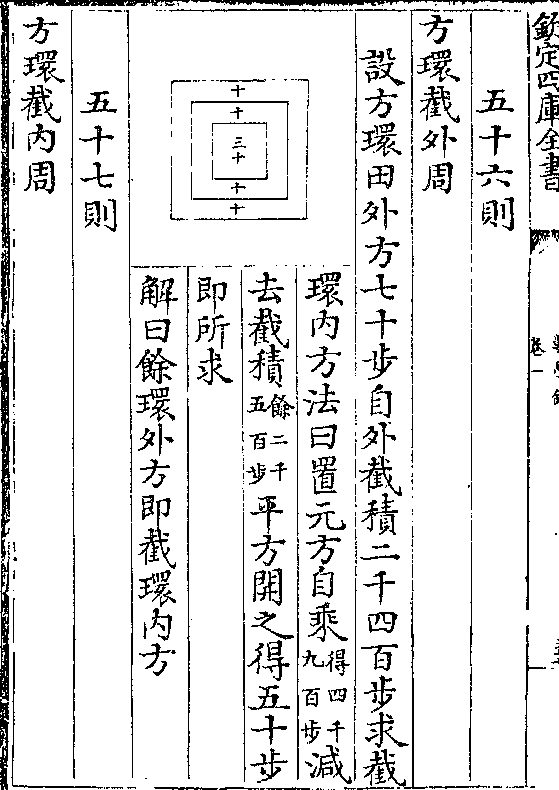 欽定四庫全書
卷一
五十六則
方環截外周
設方環田外方七十步自外截積二千四百步求截
環内方法曰置元方自乘得四千九百步減
去截積餘二千五百步平方開之得五十步
即所求
解曰餘環外方即截環内方
十
十
三十
十
十
五十七則
方環截内周